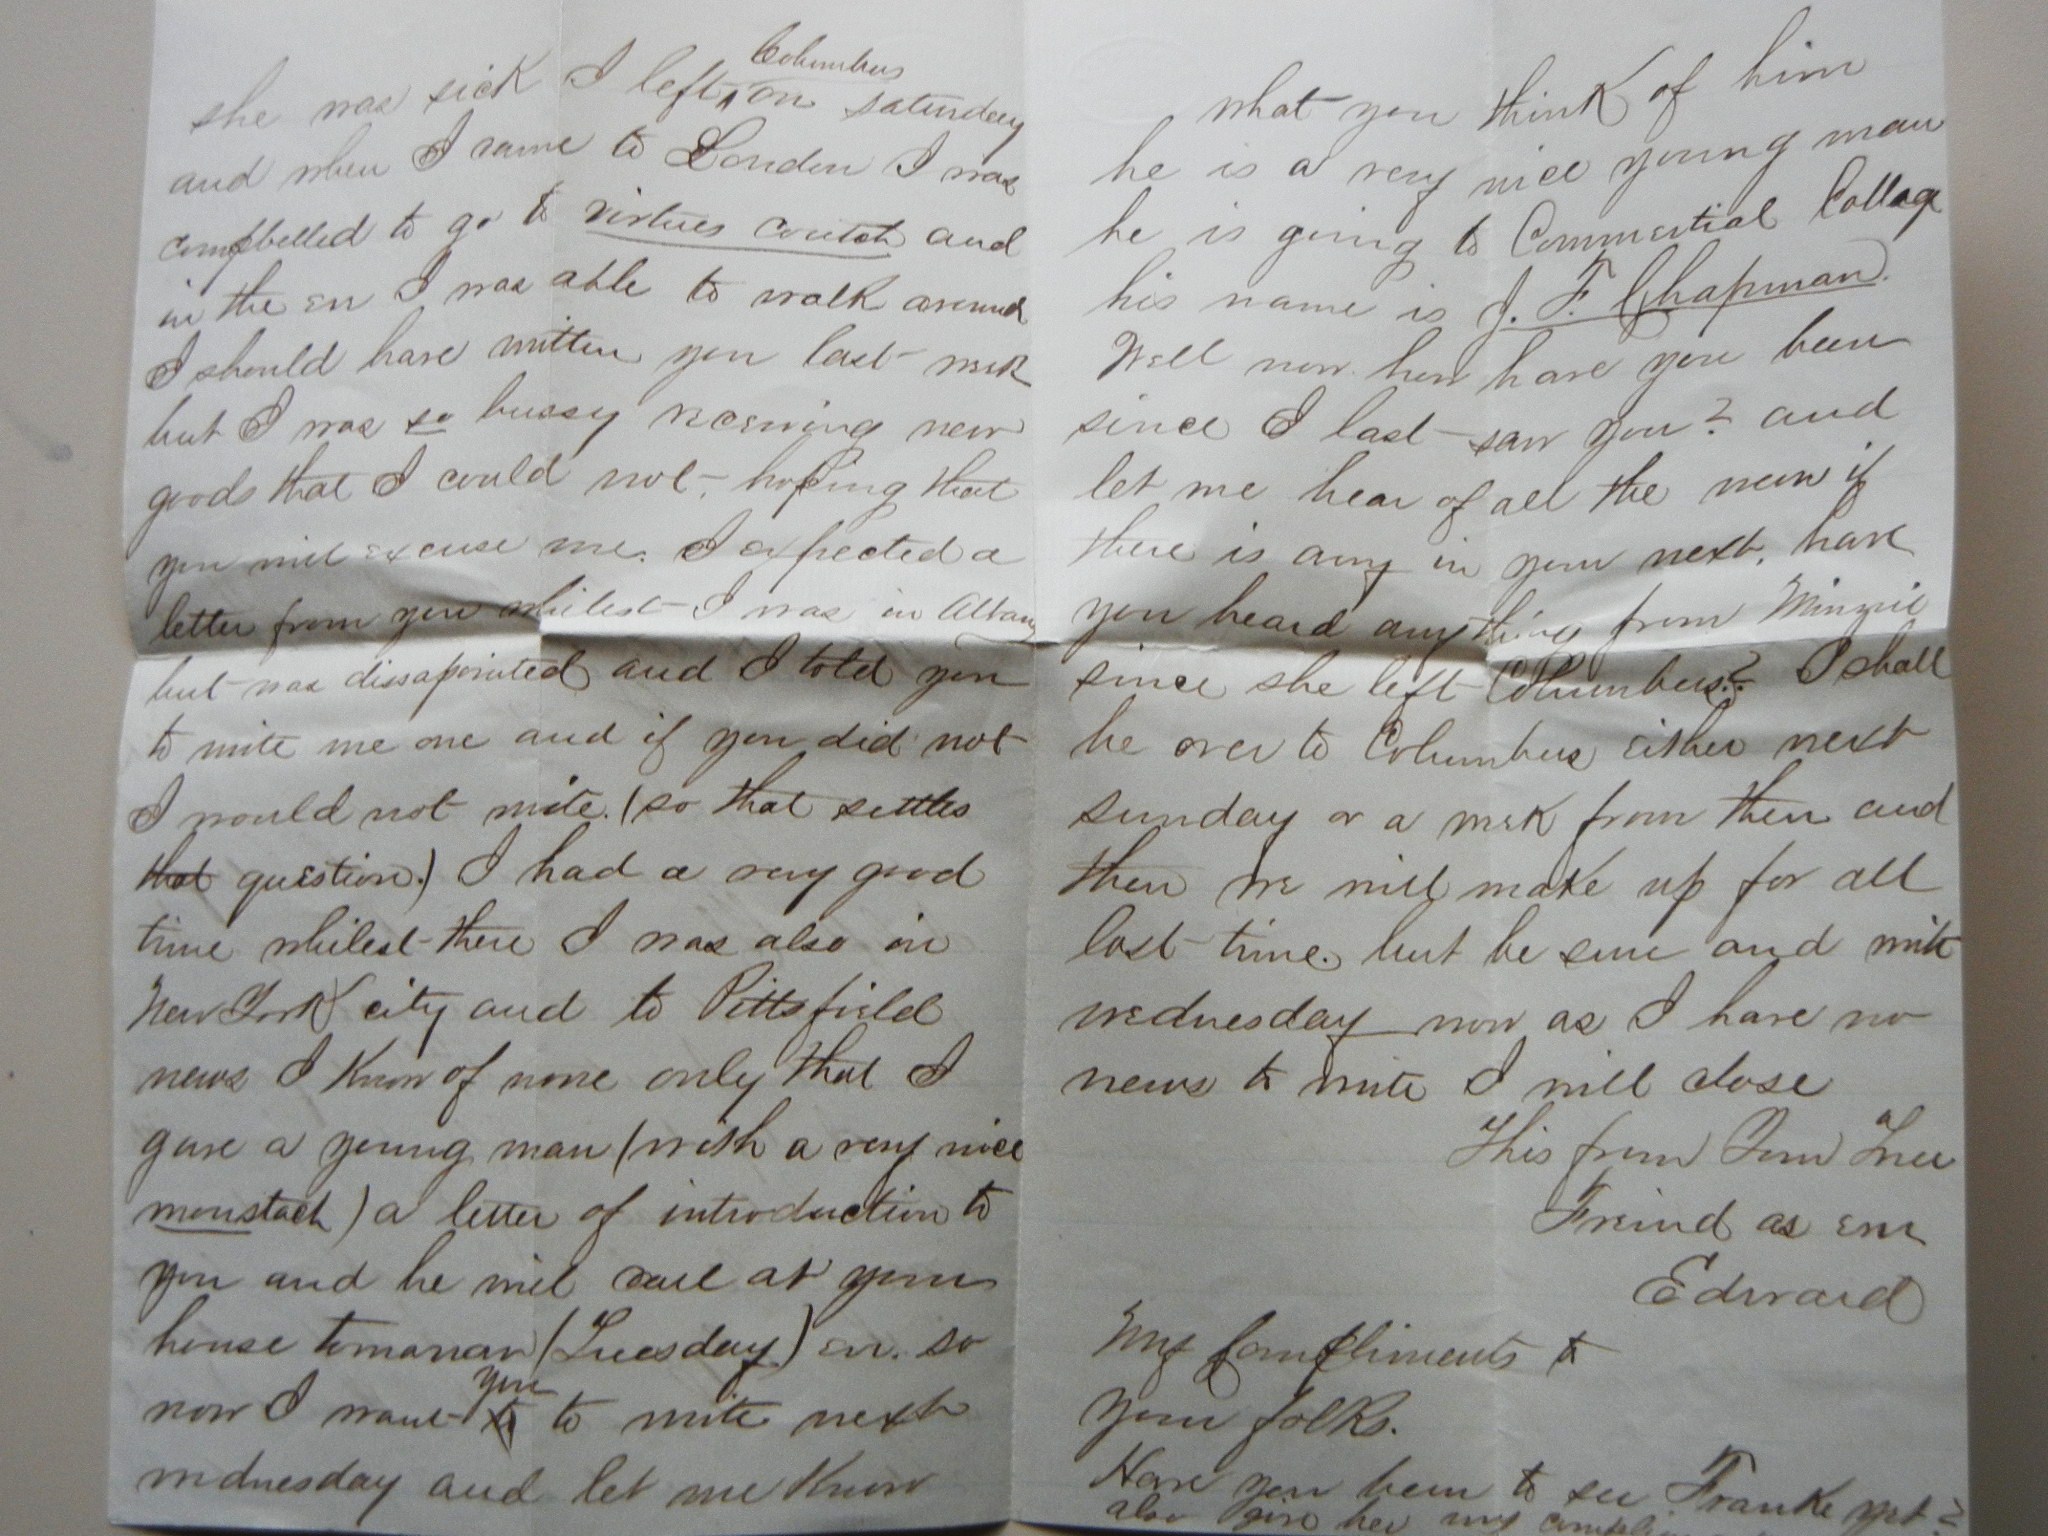 she was sick I left Columbus on saturday
and when I came to London I was
compbelled to go to virtues coutch and
in the en I was able to walk around
I should have written you last week
but I was so bussy receiving new
goods that I could not, hoping that
you will excuse me. I expected a
letter from you whilest I was in Albany
but was dissapointed and I told you
to write me one and if you did not
I would not write. (so that settles
that question.) I had a very good
time whilest there I was also in
New York city and to Pittsfield
news I know of none only that I
gave a young man (with a very nice
moustach) a letter of introduction to
you and he will call at your
house tomorrow (Tuesday) en. so
now I want you to write next
wednesday and let me know
what you think of him
he is a very nice young man
he is going to Commertial Collage
his name is J. F. Chapman.
Well now how have you been
since I last saw you? and
let me hear of all the news if
there is any in your next. have
you heard anything from Minnie
since she left Columbus? I shall
be over to Columbus either next
sunday or a week from then and
then we will make up for all
lost time. but be sure and write
wednesday now as I have no
news to write I will close
This from Your True
Freind as ever
Edward
My Compliments to
your folks.
Have you been to see Franke yet?
also give her my